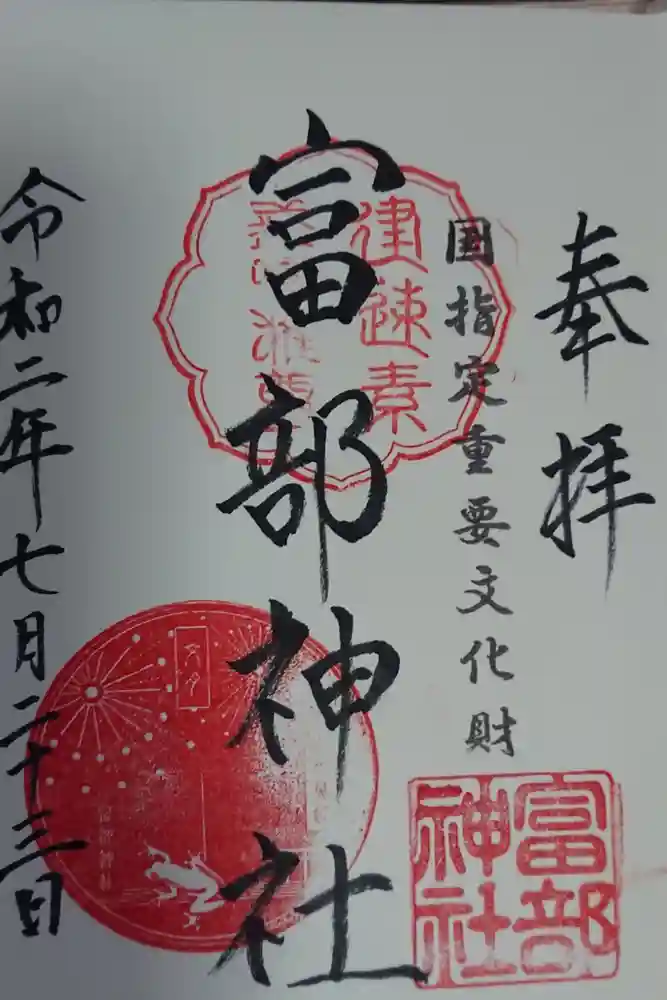 奉拝
国指定重要文化財
建速素
富部神社
令和二年七月二十三日
富部
神社